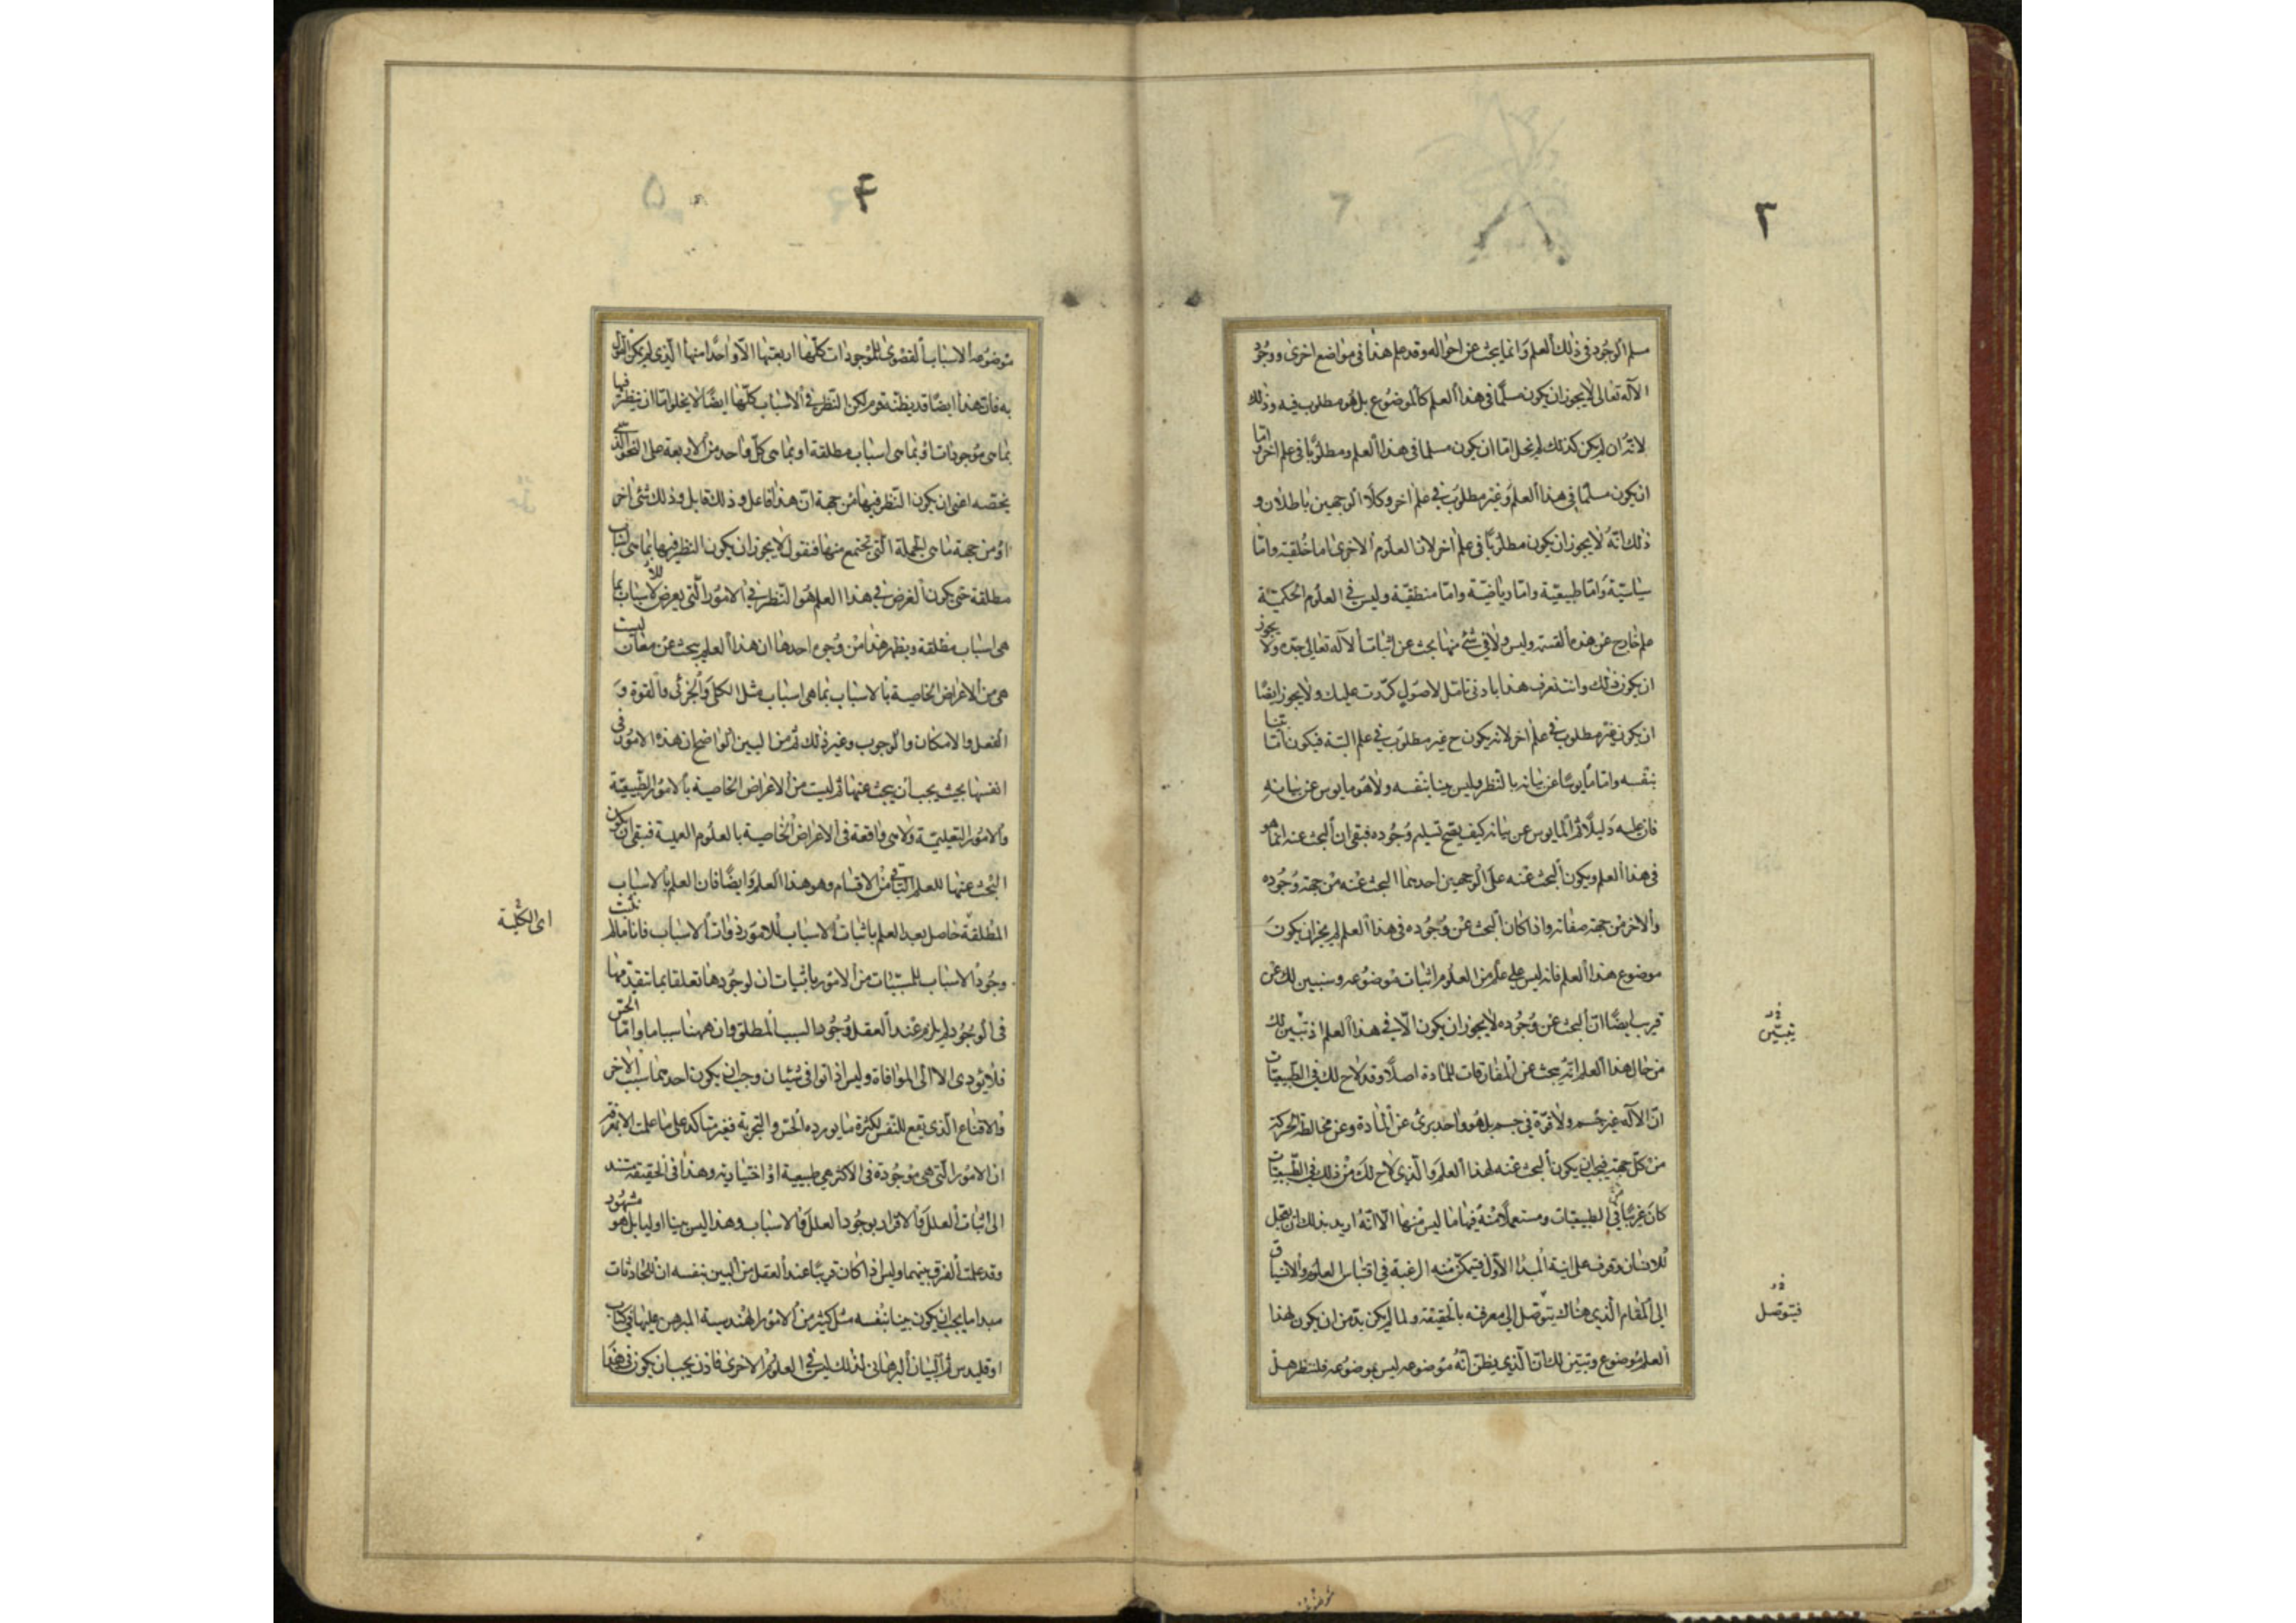 ٣
مسلم الوجود فى ذلك العلم وانما يبحث عن احواله وقد علم هذا فى مواضع اخرى ووجود
الاله تعالى لا يجوز ان يكون مسلما فى هذا العلم كالموضوع بل هو مطلوب فيه وذلك
لانه ان لم يكن كذلك لم يخل اما ان يكون مسلما فى هذا العلم ومطلوبا فى علم اخر واما
ان يكون مسلما فى هذا العلم وغير مطلوب فى علم اخر وكلا الوجهين باطلان و
ذلك انه لا يجوز ان يكون مطلوبا فى علم اخر لان العلوم الاخرى اما خلقية واما
سياسية واما طبيعية واما رياضية واما منطقية وليس فى العلوم الحكمية
علم خارج عن هذه القسمة وليس ولا فى شئ منها يبحث عن اثبات الاله تعالى جده ولا يجوز
ان يكون ذلك وانت تعرف هذا بادنى تامل لاصول كررت عليك ولا يجوز ايضا
ان يكون غير مطلوب فى علم اخر لانه يكون ح غير مطلوب فى علم البتة فيكون اما بينا
بنفسه واما مايوسا عن بيانه بالنظر وليس بينا بنفسه ولا هو مايوس عن بيانه
فان عليه دليلا ثم المايوس عن بيانه كيف يصح تسليم وجوده فبقى ان البحث عنه انما هو
فى هذا العلم ويكون البحث عنه على الوجهين احدهما البحث عنه من جهة وجوده
والاخر من جهة صفاته واذا كان البحث عن وجوده فى هذا العلم لم يجز ان يكون
موضوع هذا العلم فانه ليس على علم من العلوم اثبات موضوعه وسنبين لك عن
قريب ايضا ان البحث عن وجوده لا يجوز ان يكون الا فى هذا العلم اذ تبين لك
من حال هذا العلم انه يبحث عن المفارقات للمادة اصلا وقد لاح لك فى الطبيعيات
ان الاله غير جسم ولا قوة فى جسم بل هو واحد برئ عن المادة وعن مخالطة الحركة
من كل جهة فيجب ان يكون البحث عنه لهذا العلم والذى لاح لك من ذلك فى الطبيعيات
كان غريبا فى الطبيعيات ومستعملا منه فيها ما ليس منها الا انه اريد بذلك ان يعجل
للانسان وقوف على انية المبدا الاول فيتمكن منه الرغبة فى اقتباس العلوم والانسياق
الى المقام الذى هناك يتوصل الى معرفته بالحقيقة ولما لم يكن بد من ان يكون لهذا
العلم موضوع وتبين لك ان الذى يظن انه موضوعه ليس بموضوعه فلننظر هل
يتبين
فيتوصل
۴
موضوعه الاسباب القصوى للموجودات كلها اربعتها الا واحدا منها الذى لم يكن القول
به فان هذا ايضا قد يظنه قوم لكن النظر فى الاسباب كلها ايضا لا يخلو اما ان ينظر فيها
بما هى موجودات او بما هى اسباب مطلقة او بما هى كل واحد من الاربعة على النحو الذى
يخصه اعنى ان يكون النظر فيها من جهة ان هذا فاعل وذلك قابل وذلك شئ اخر
او من جهة ما هى الجملة التى تجتمع منها فنقول لا يجوز ان يكون النظر فيها بما هى اسباب
مطلقة حتى يكون الغرض فى هذا العلم هو النظر فى الامور التى يعرض للاسباب بما
هى اسباب مطلقة ويظهر هذا من وجوه احدها ان هذا العلم يبحث عن معان ليست
هى من الاعراض الخاصية بالاسباب بما هى اسباب مثل الكلى والجزئى والقوة و
الفعل والامكان والوجوب وغير ذلك ثم من البين الواضح ان هذه الامور فى
انفسها بحيث يجب ان يبحث عنها ثم ليست من الاعراض الخاصية بالامور الطبيعية
والامور التعليمية ولا هى واقعة فى الاعراض الخاصية بالعلوم العملية فبقى ان يكون
البحث عنها للعلم الباقى من الاقسام وهو هذا العلم وايضا فان العلم بالاسباب
المطلقة حاصل بعد العلم باثبات الاسباب للامور ذوات الاسباب فانا ما لم نثبت
وجود الاسباب للمسببات من الامور باثبات ان لوجودها تعلقا بما تتقدمها
فى الوجود لم يلزم عند العقل وجود السبب المطلق وان ههنا سببا ما واما الحس
فلا يؤدى الا الى الموافاة وليس اذا توافى شيئان وجب ان يكون احدهما سبب الاخر
والاقناع الذى يقع للنفس لكثرة ما يورده الحس والتجربة فغير متاكد على ما علمت الا بمعرفة
ان الامور التى هى موجودة فى الاكثر هى طبيعية او اختيارية وهذا فى الحقيقة مستند
الى اثبات العلل والاقرار بوجود العلل والاسباب وهذا ليس بينا اوليا بل هو مشهور
وقد علمت الفرق بينهما وليس اذا كان قريبا عند العقل من البين بنفسه ان للحادثات
مبدا ما يجب ان يكون بينا بنفسه مثل كثير من الامور الهندسية المبرهن عليها فى كتاب
اوقليدس ثم البيان البرهانى لذلك ليس فى العلوم الاخرى فاذن يجب ان يكون فى هذا
اى الكلية